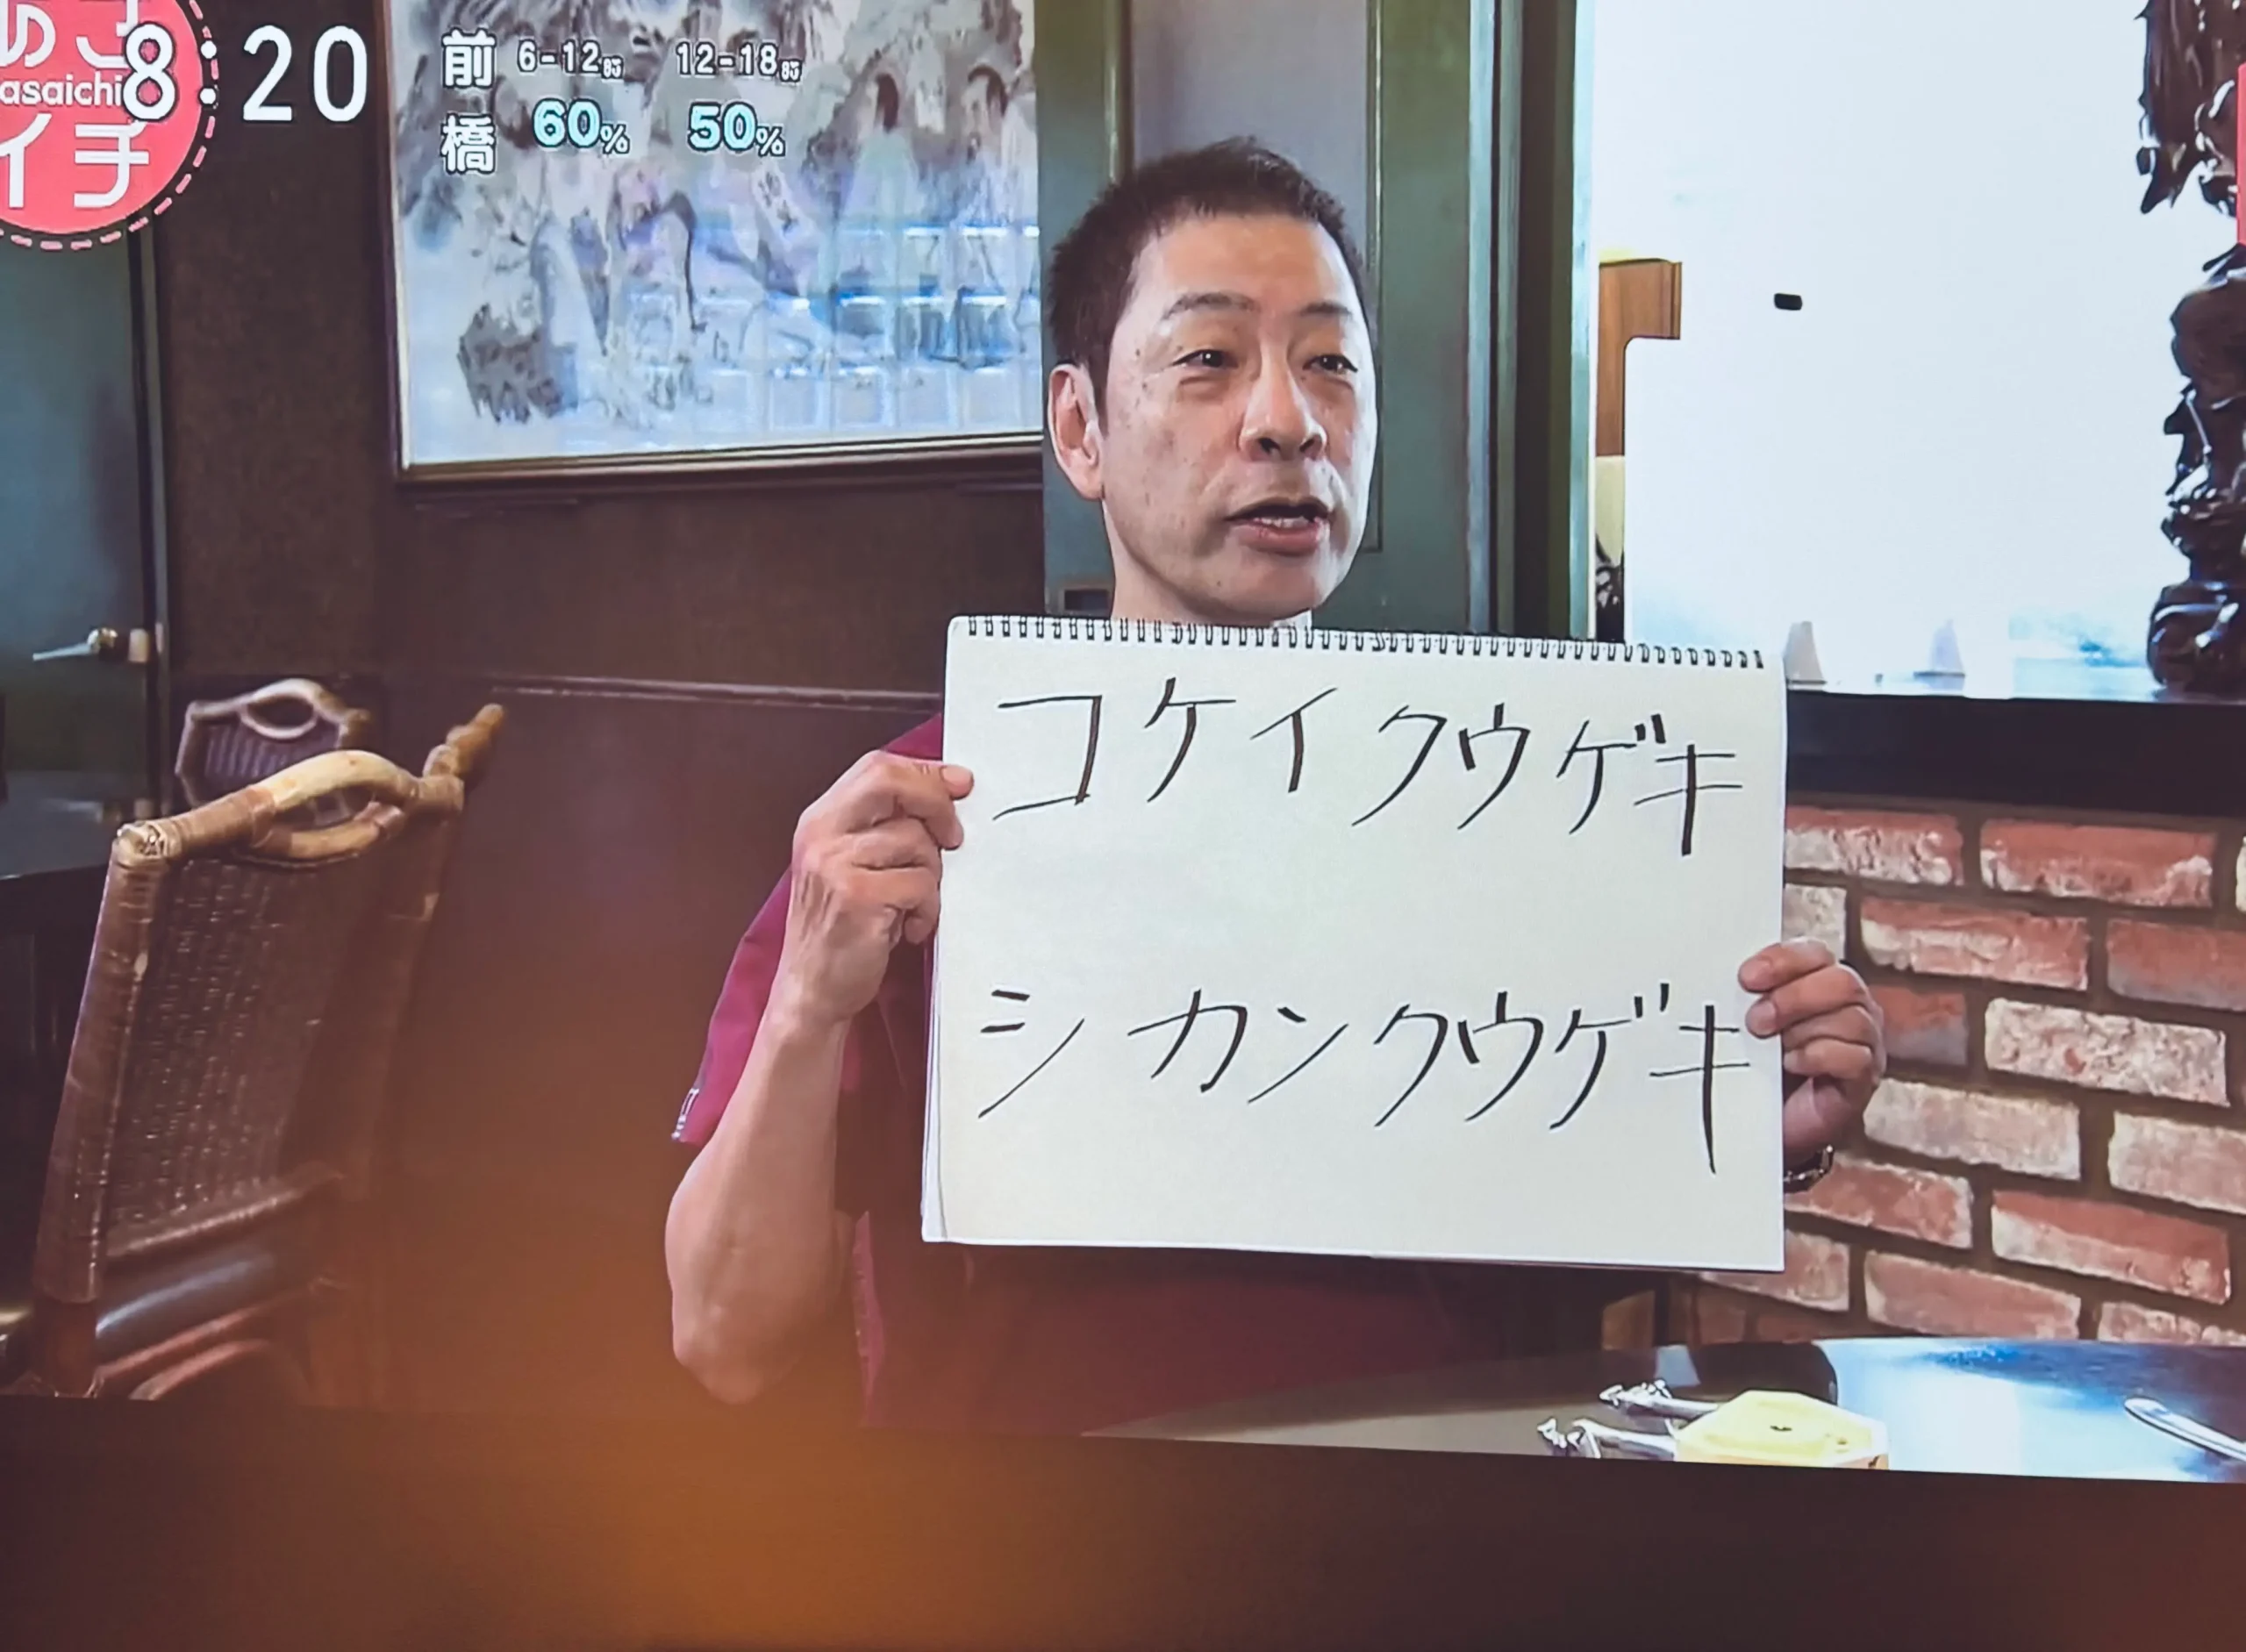 あさ
asaichi
イチ
8:20
前橋
6-12時 12-18時
60% 50%
コケイクウゲキ
シカンクウゲキ